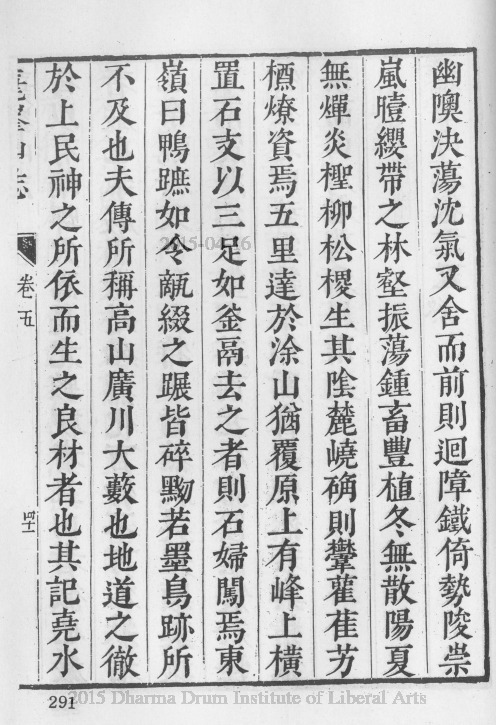 幽隩決蕩沈氣又舍而前則迴障鐵倚勢陵崇
嵐曀纓帶之林壑振蕩鍾畜豐植冬無散陽夏
無燀炎檉柳松椶生其陰麓嶢确則虆雚萑艻
槱燎資焉五里達於涂山猶覆原上有峰上橫
置石支以三足如釜鬲去之者則石婦闖焉東
嶺曰鴨蹠如令瓻綴之蹍皆碎黝若墨鳥跡所
不及也夫傳所稱高山廣川大藪也地道之徹
於上民神之所依而生之良材者也其記堯水
山志
卷五
四十一
291
2015-04-16
2015 Dharma Drum Institute of Liberal Arts